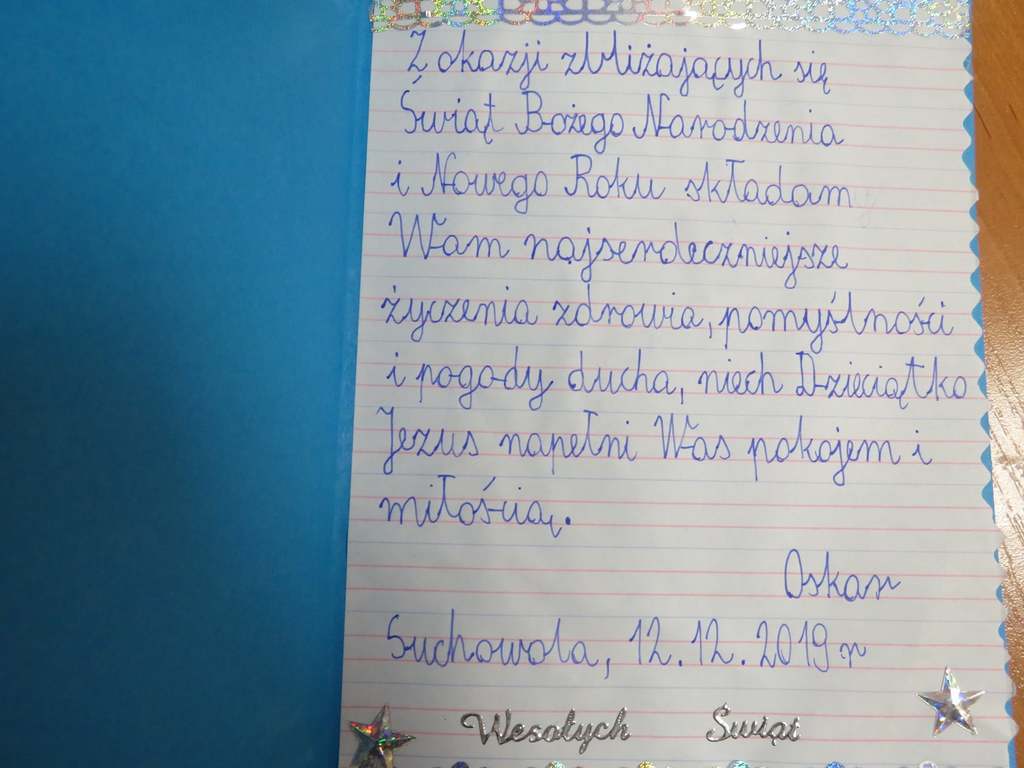 Z okazji zbliżających się
Świąt Bożego Narodzenia
i Nowego Roku składam
Wam najserdeczniejsze
życzenia zdrowia, pomyślności
i pogody ducha, niech Dzieciątko
Jezus napełni Was pokojem i
miłością.
Oskar
Suchowola, 12.12.2019 r
Wesołych Świąt